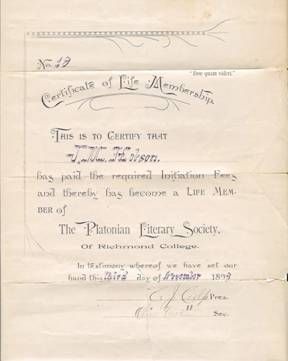 No. 19
"Esse quam videri."
Certificate of Life Membership.
THIS IS TO CERTIFY THAT
Hobson
has paid the required Initiation Fees
and thereby has become a LIFE MEM-
BER of
The Platonian Literary Society,
Of Richmond College.
In testimony whereof we have set our
hand this third day of November 1899
Pres.
Sec.